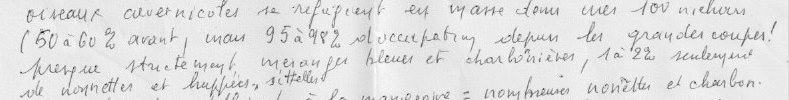 oiseaux cavernicoles se réfugient en masse dans mes 100 nichoirs
(50 à 60% avant, mais 95 à 98% d'occupation depuis les grandes coupes!
presque strictement mésanges bleues et charbonnières, 1 à 2% seulement
de nonnettes et huppées, sittelles
à la mangeoire = nombreuses nonettes et charbon.